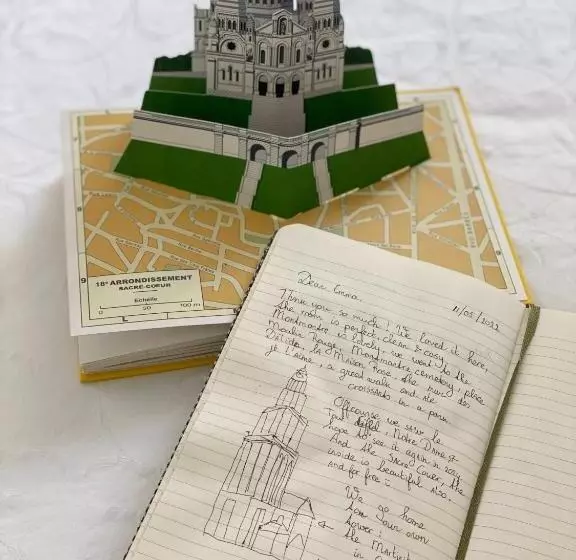 18e ARRONDISSEMENT
SACRE-COEUR
Echelle
0 50 100 m
9
9
L
Dear Emma,
11/05/2022
Thank you so much! We loved it here,
the room is perfect, clean & cosy.
Montmartre is lovely, we went to the
Moulin Rouge, Montmartre cemetery, place
Dalida, la Maison Rose, the mur des
je t'aime, a great walk and ate
croissants in a park.
Offcourse we saw the
Tour Eiffel, Notre Dame &
hope to see it again in 2024
And the Sacre Coeur, the
inside is beautiful also.
and for free
We go home
your own
tower:
the Martyrs
in